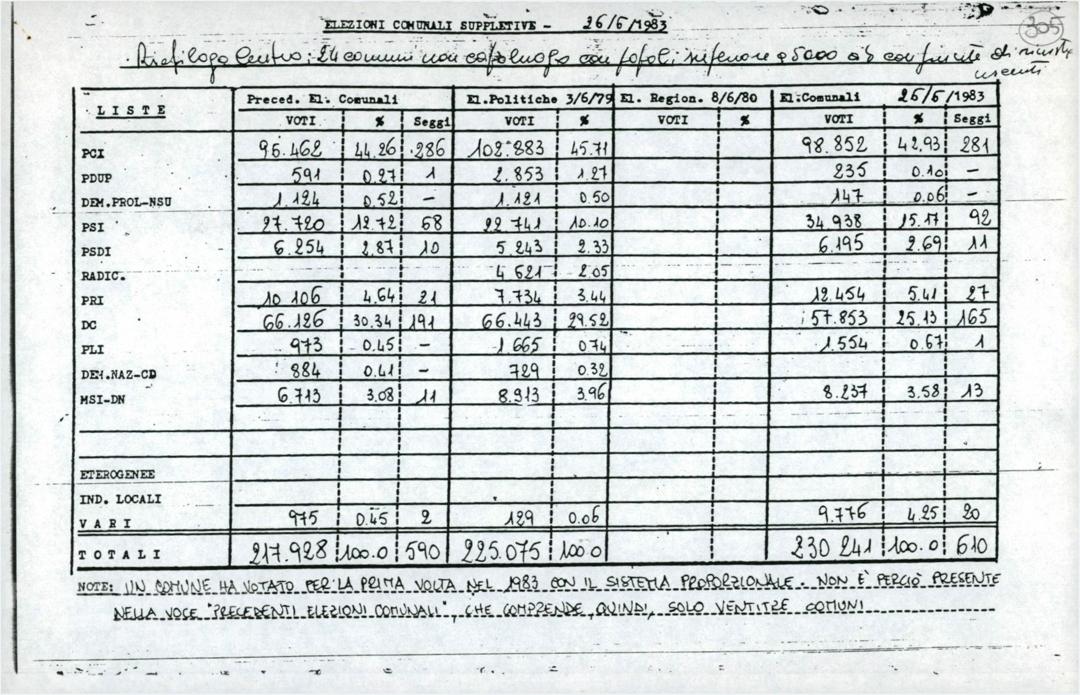 ELEZIONI COMUNALI SUPPLETIVE - 26/6/1983
305
Riepilogo Centro: 24 comuni non capoluogo con popol. a 5000 ab
LISTE Preced. El. Comunali El.Politiche 3/6/79 El. Region. 8/6/80 El.Comunali 26/6/1983
VOTI % Seggi VOTI % VOTI % VOTI % Seggi
PCI 96.462 44.26 286 102.883 45.71 98.852 42,93 281
PDUP 591 0.27 1 2.853 1.27 235 0.10 -
DEM.PROL-NSU 1.124 0.52 - 1.121 0.50 147 0.06 -
PSI 27.720 12.72 68 22.741 10.10 34.938 15.17 92
PSDI 6.254 2,87 10 5.243 2.33 6.195 2.69 11
RADIC. 4 621 2.05
PRI 10 106 4.64 21 7.734 3.44 12.454 5.41 27
DC 66.126 30.34 191 66.443 29.52 57.853 25.13 165
PLI 973 0.45 - 1 665 0.74 1.554 0.67 1
DEM.NAZ-CD 884 0.41 - 729 0.32
MSI-DN 6.713 3.08 11 8.913 3.96 8.237 3.58 13
ETEROGENEE
IND. LOCALI
VARI 975 0.45 2 129 0.06 9.776 4.25 20
TOTALI 217.928 100.0 590 225.075 100 0 230 241 100.0 610
NOTE: UN COMUNE HA VOTATO PER LA PRIMA VOLTA NEL 1983 CON IL SISTEMA PROPORZIONALE. NON È PERCIÒ PRESENTE
NELLA VOCE "PRECEDENTI ELEZIONI COMUNALI", CHE COMPRENDE, QUINDI, SOLO VENTITRE COMUNI